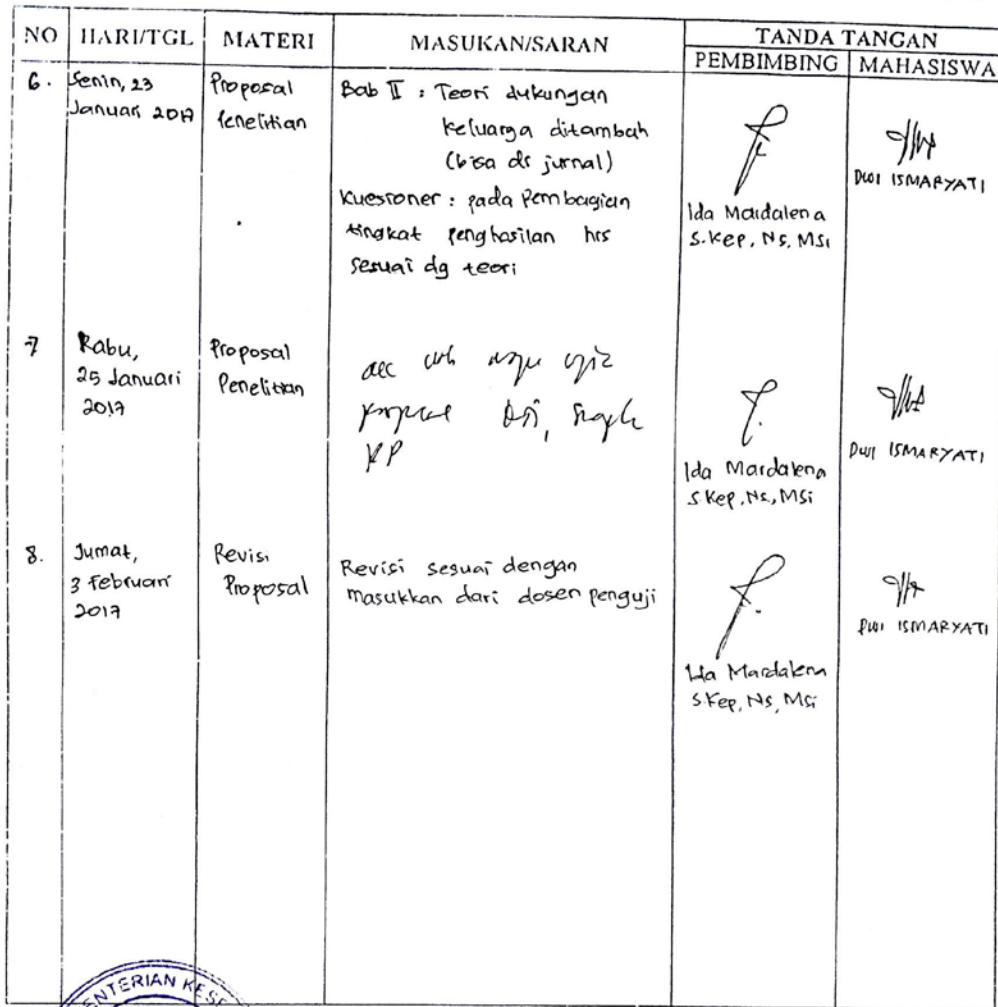 NO HARI/TGL MATERI MASUKAN/SARAN TANDA TANGAN
PEMBIMBING MAHASISWA
6. Senin, 23 Januari 2017
Proposal Penelitian
Bab II : Teori dukungan
keluarga ditambah
(bisa dr jurnal)
Kuesioner : pada Pembagian
tingkat penghasilan hrs
sesuai dg teori
Ida Mardalena
S.Kep, Ns, MSi
DWI ISMARYATI
7 Rabu,
25 Januari
2017
Proposal
Penelitian
acc
Ida Mardalena
S.Kep, Ns, MSi
DWI ISMARYATI
8. Jumat,
3 Februari
2017
Revisi
Proposal
Revisi sesuai dengan
masukkan dari dosen penguji
Ida Mardalena
S.Kep, Ns, MSi
DWI ISMARYATI
ENTERIAN KES